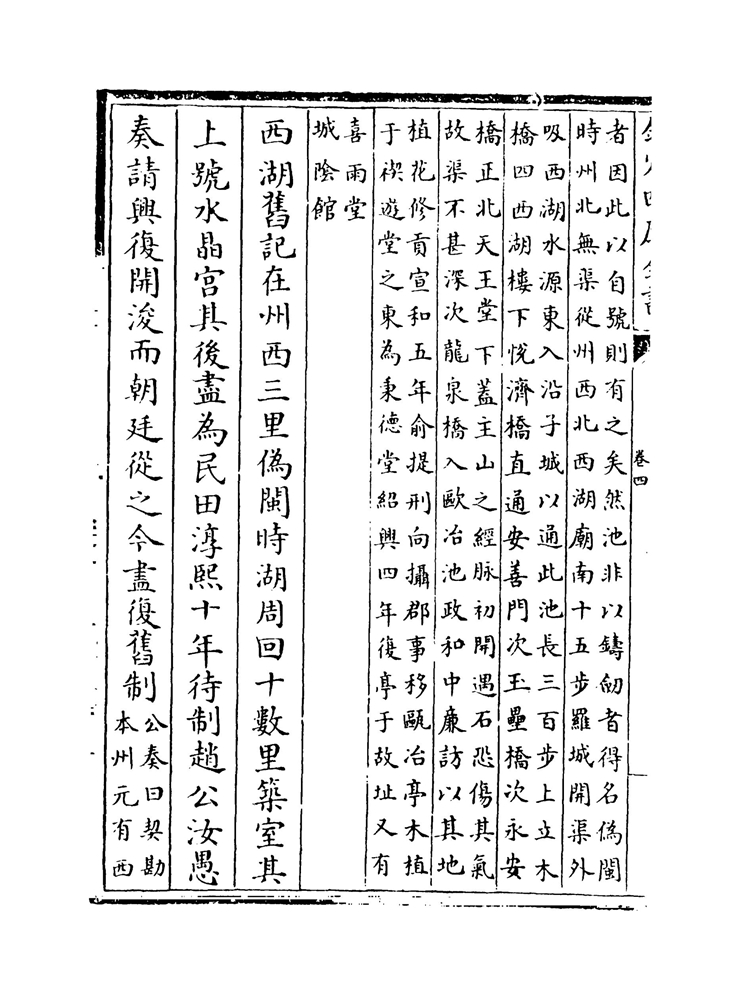 欽定四庫全書
卷四
者因此以自號則有之矣然池非以鑄劒者得名偽閩
時州北無渠從州西北西湖廟南十五步羅城開渠外
吸西湖水源東入沿子城以通此池長三百步上立木
橋四西湖樓下悅濟橋直通安善門次玉壘橋次永安
橋正北天王堂下蓋主山之經脉初開遇石恐傷其氣
故渠不甚深次龍泉橋入歐冶池政和中廉訪以其地
植花修貢宣和五年俞提刑向攝郡事移甌冶亭木植
于禊遊堂之東為秉德堂紹興四年復亭于故址又有
喜雨堂
城隂館
西湖舊記在州西三里偽閩時湖周回十數里築室其
上號水晶宫其後盡為民田淳熙十年待制趙公汝愚
奏請興復開浚而朝廷從之今盡復舊制
公奏曰契勘
本州元有西